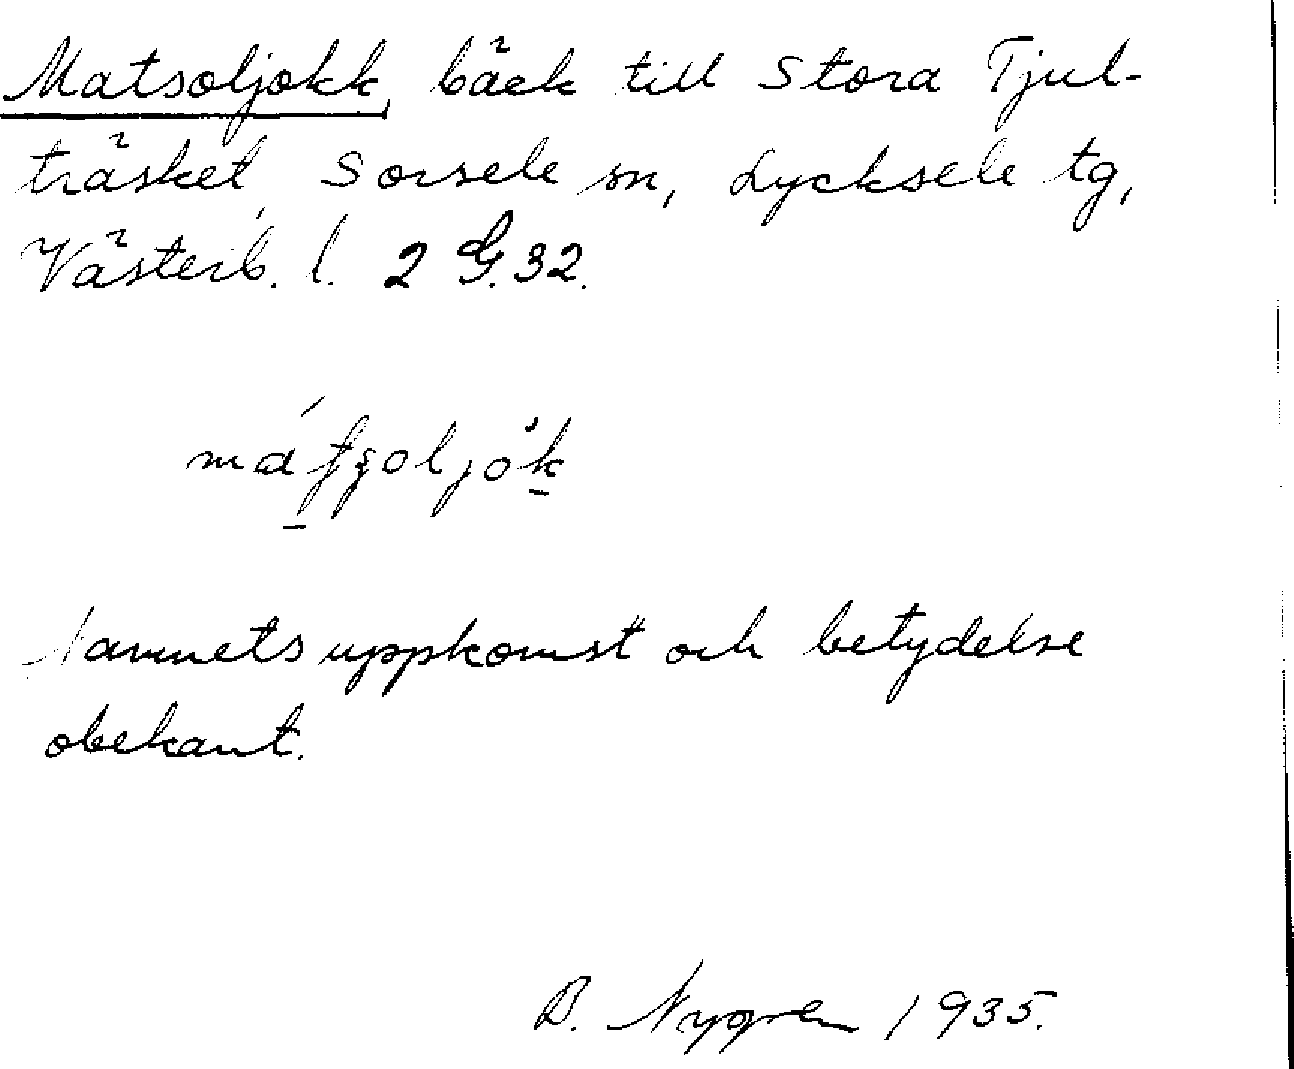 Matsoljokk, bäck till Stora Tjul-
träsket, Sorsele sn, Lycksele tg,
Västerb. l. 2 G. 32.
Namnets uppkomst och betydelse
obekant.
B. Nygren 1935.